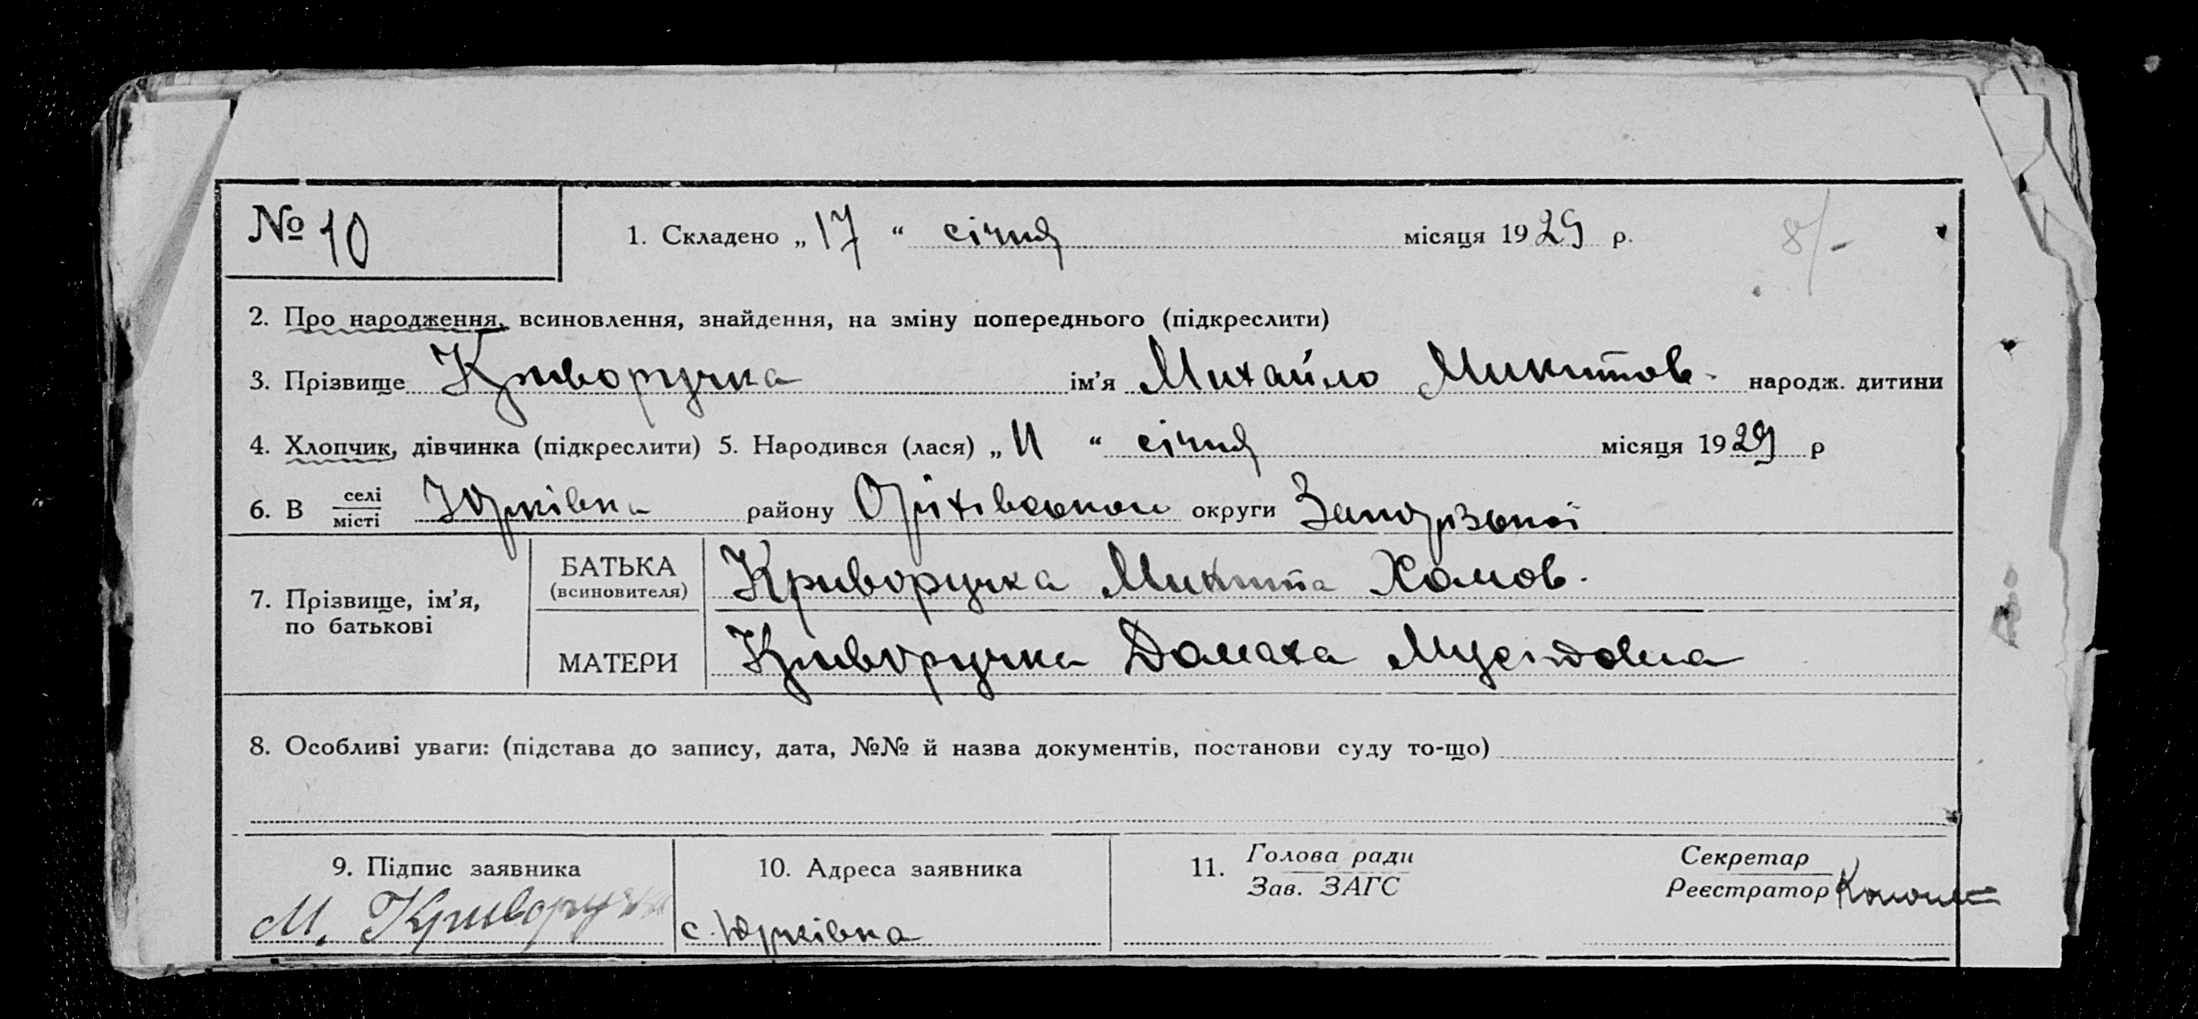 № 10
1. Складено „ 17 “ січня місяця 1929 р.
2. Про народження, всиновлення, знайдення, на зміну попереднього (підкреслити)
3. Прізвище Криворучка ім’я Михайло Микитов. народж. дитини
4. Хлопчик, дівчинка (підкреслити) 5. Народився (лася) „ 11 “ січня місяця 1929 р
6. В селі місті Юрківка району Оріхівського округи Запорізької
7. Прізвище, ім’я, по батькові
БАТЬКА (всиновителя) Криворучка Микита Хомов.
МАТЕРИ Криворучка Домаха Мусіовна
8. Особливі уваги: (підстава до запису, дата, №№ й назва документів, постанови суду то-що)
9. Підпис заявника
М. Криворучка
10. Адреса заявника
с. Юрківка
11. Голова ради
Зав. ЗАГС
Секретар
Реєстратор